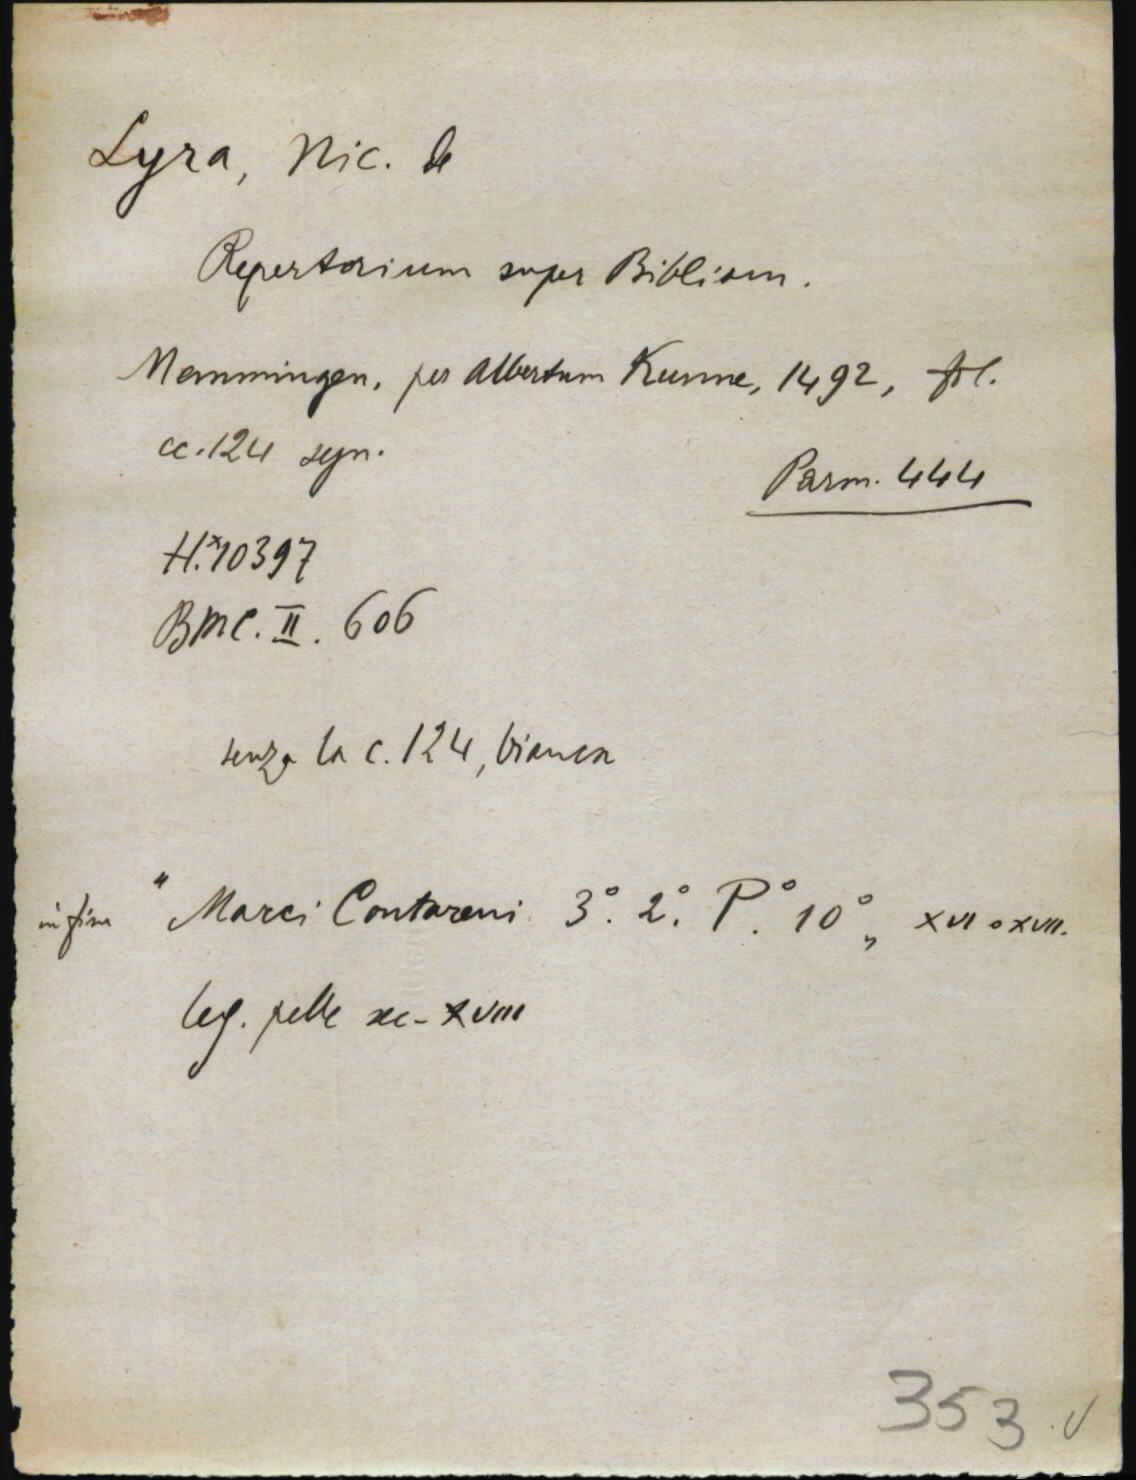 Lyra, Nic. de
Repertorium super Bibliam.
Memmingen, per Albertum Kunne, 1492, fol.
cc. 124 segn.
Parm. 444
H.*10397
BMC. II. 606
senza la c. 124, bianca
in fine "Marci Contareni 3°. 2°. P°. 10°„ XVI o XVII.
leg. pelle sec. XVIII
353